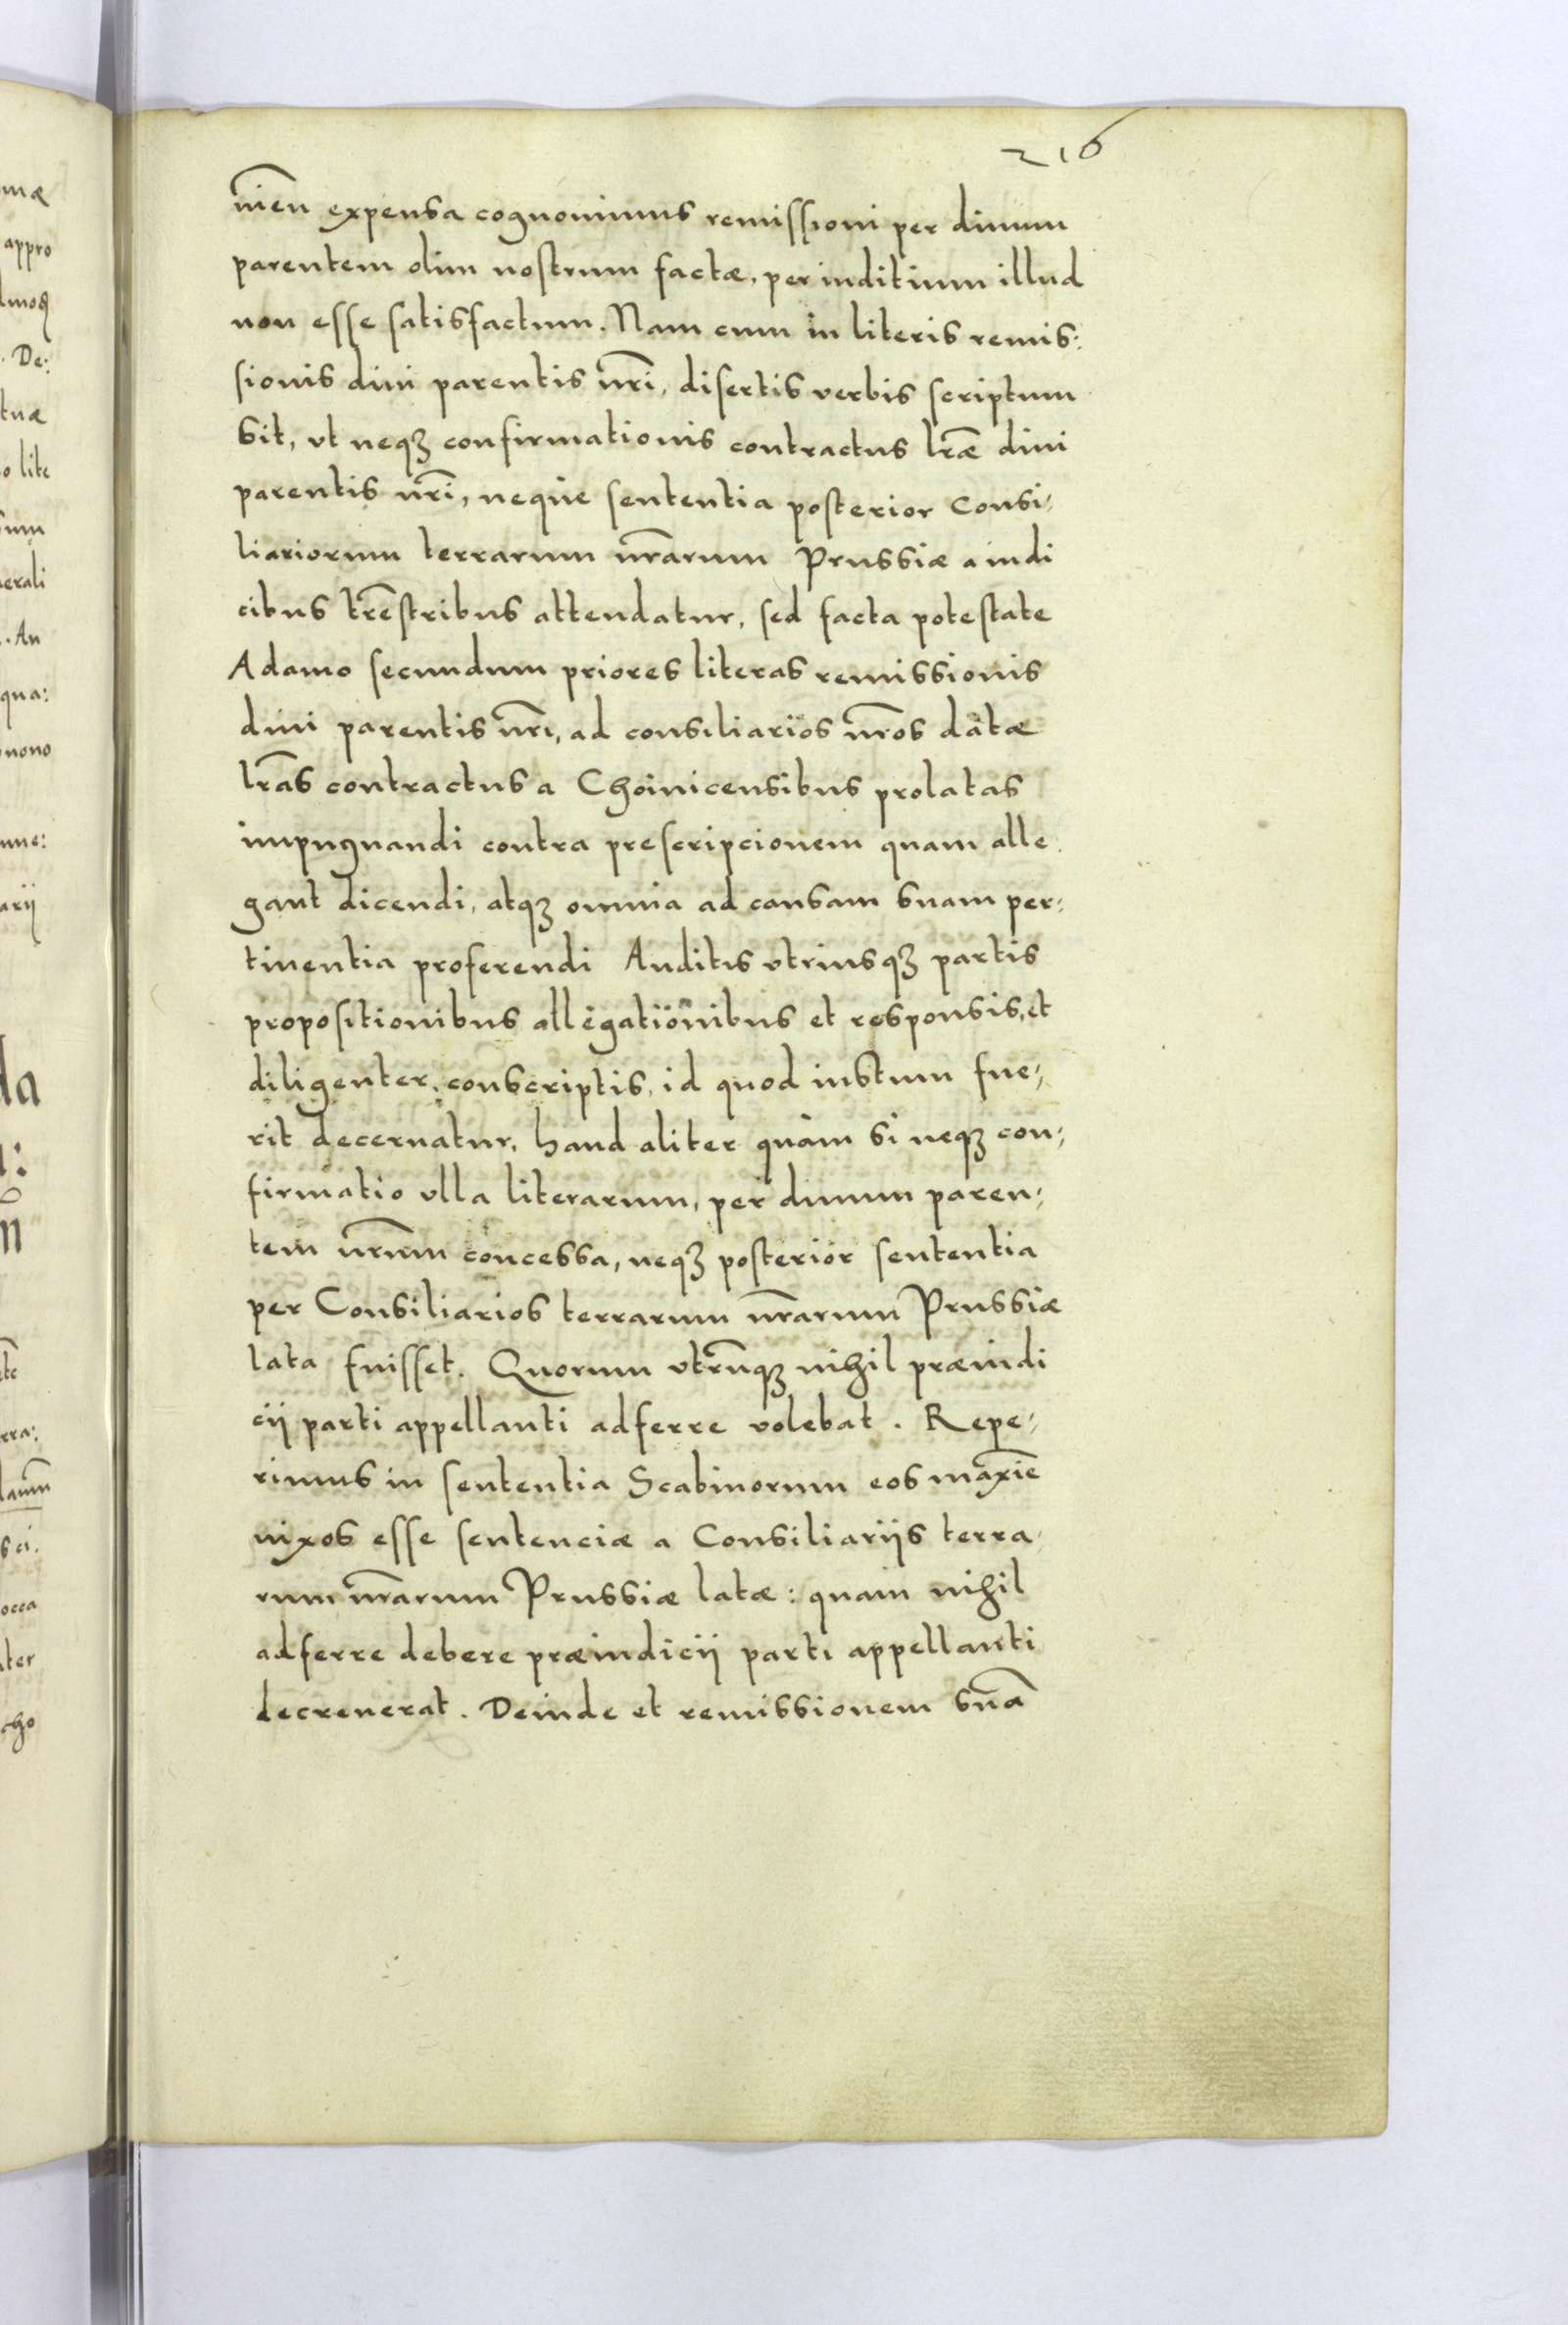 216
mēn expensa cognouimus remissioni per diuum
parentem olim nostrum factæ, per iuditium illud
non esse satisfactum. Nam cum in literis remis:
sionis diui parentis nr̃i, disertis verbis scriptum
sit, vt neqꝫ confirmationis contractus lr̃æ diui
parentis nr̃i, neque sententia posterior Consi:
liariorum terrarum nr̃arum Prussiæ a iudi
cibus tr̃estribus attendatur, sed facta potestate
Adamo secundum priores literas remissionis
diui parentis nr̃i, ad consiliarios nr̃os datæ
lr̃as contractus a Choinicensibus prolatas
impugnandi contra prescripcionem quam alle
gant dicendi, atqꝫ omnia ad causam suam per:
tinentia proferendi Auditis vtriusqꝫ partis
propositionibus allegationibus et responsis, et
diligenter conscriptis, id quod iustum fue:
rit decernatur, haud aliter quàm si neqꝫ con:
firmatio vlla literarum, per diuum paren:
tem nr̃um concessa, neqꝫ posterior sententia
per Consiliarios terrarum nr̃arum Prussiæ
lata fuisset. Quorum vtrũqꝫ nihil præiudi
cij parti appellanti adferre volebat. Repe:
rimus in sententia Scabinorum eos maxĩe
nixos esse sentenciæ a Consiliarijs terra
rum nr̃arum Prussiæ latæ: quam nihil
adferre debere præiudicij parti appellanti
decreuerat. Deinde et remissionem suā